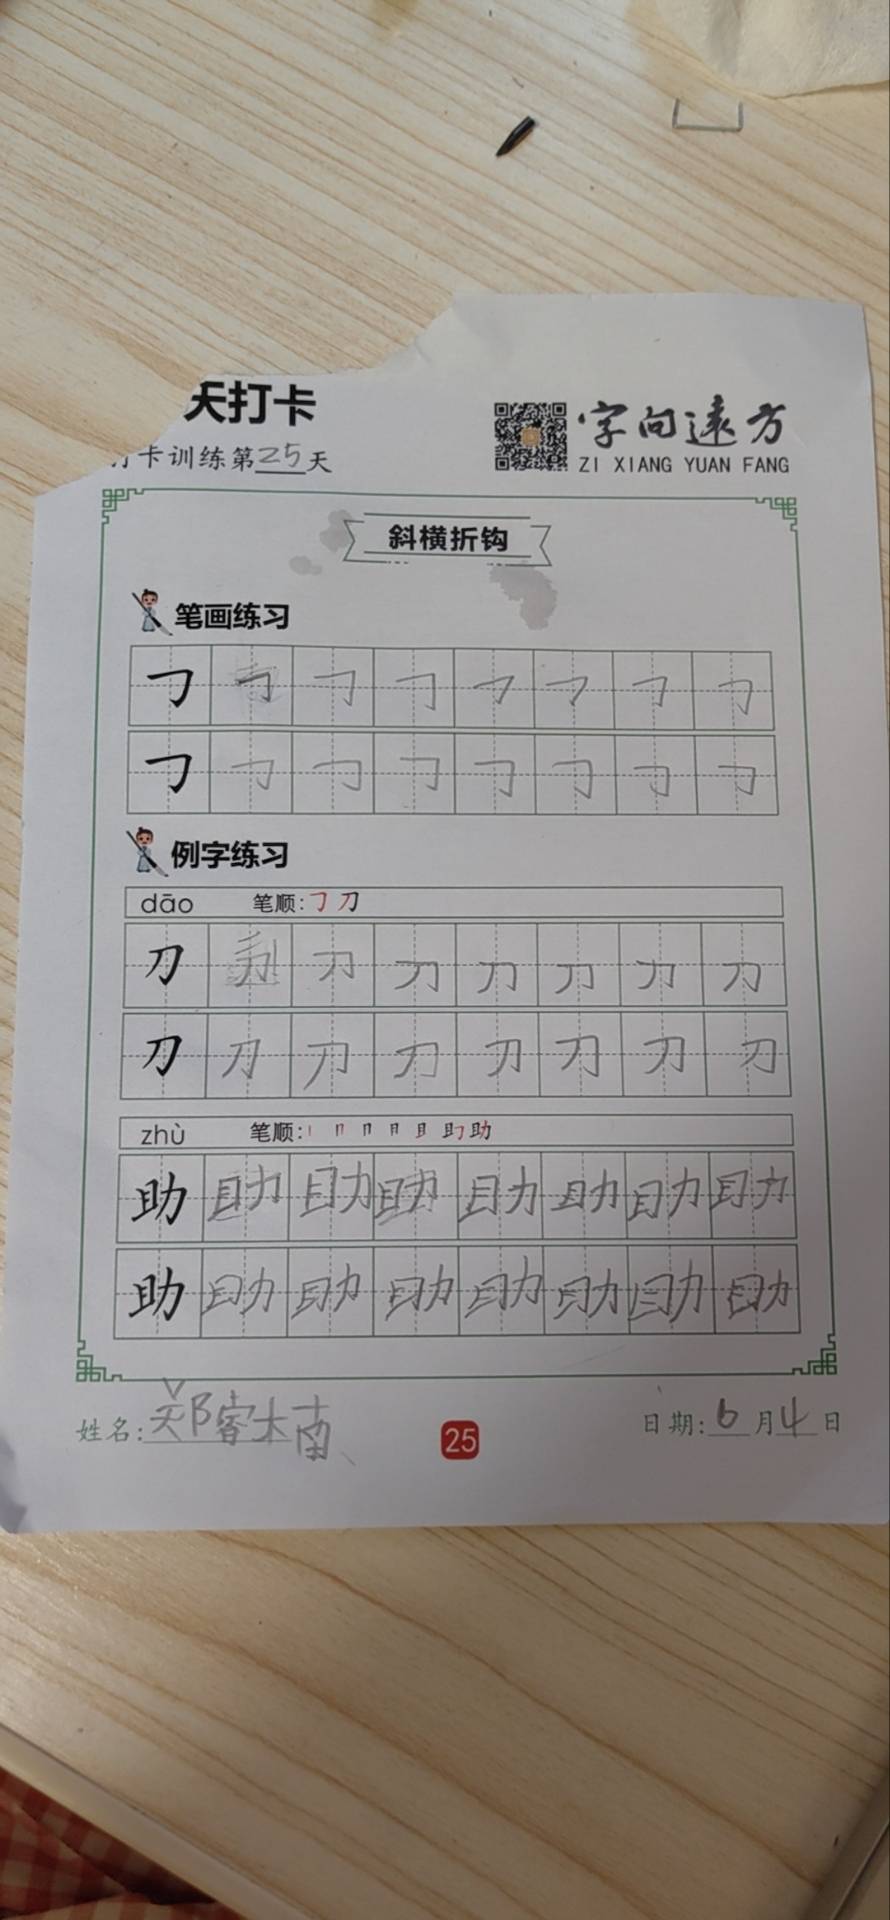 天打卡
打卡训练第25天
字向遠方
ZI XIANG YUAN FANG
斜横折钩
笔画练习
例字练习
dāo 笔顺: 刀
刀 刀 刀 刀 刀 刀 刀
刀 刀 刀 刀 刀 刀 刀 刀
zhù 笔顺: 丨 冂 冃 月 且 助 助
助 助 助 助 助 助 助 助
助 助 助 助 助 助 助 助
姓名: 郑睿楠
25
日期: 6月4日